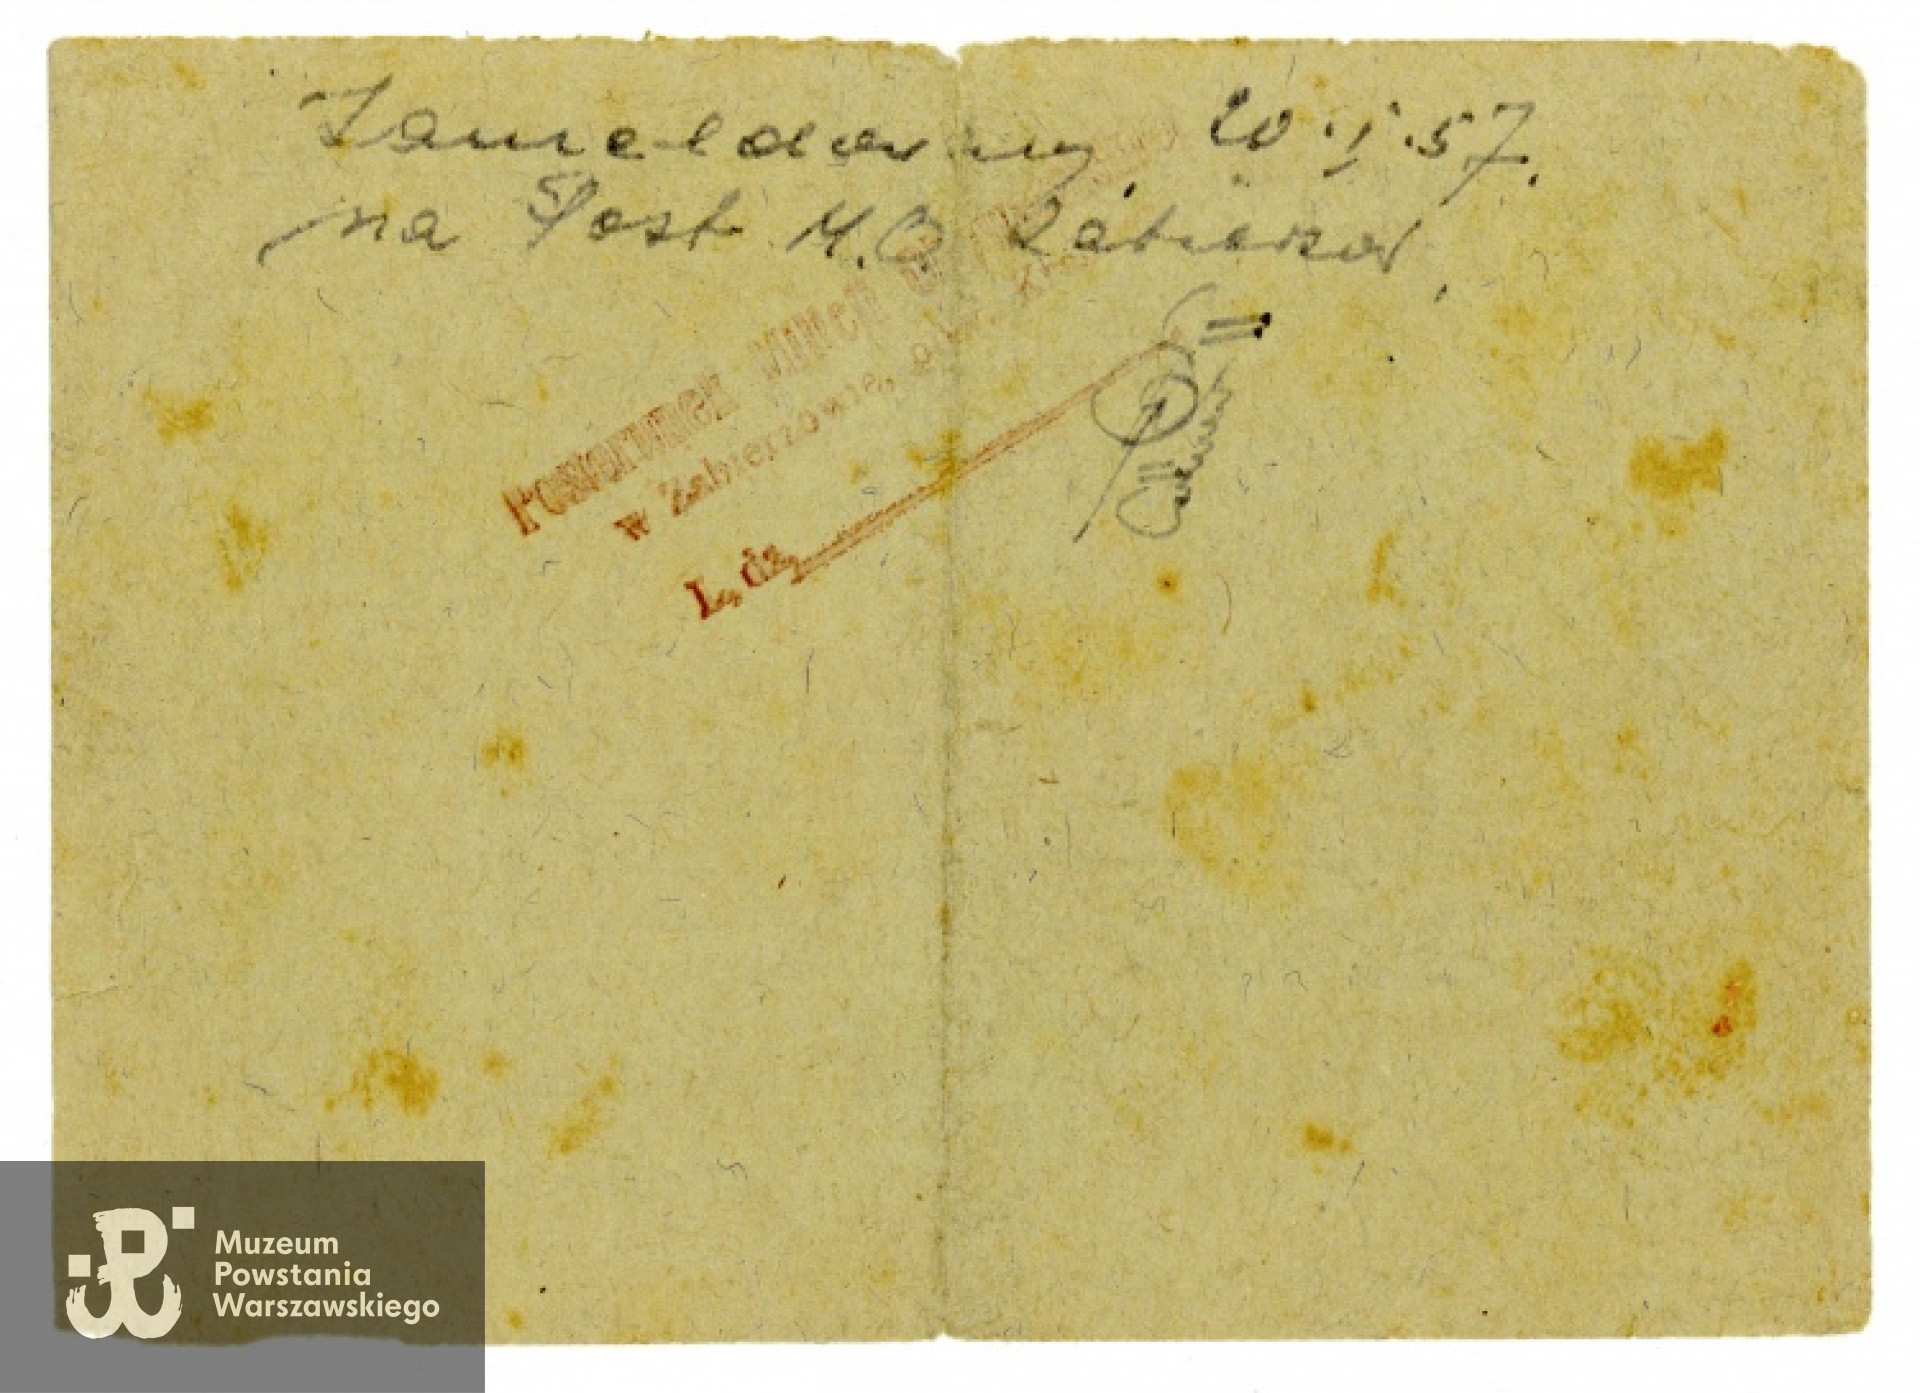 Zameldowany 20.I.57.
na Post M.O Zabierzow
Posterunek Milicji
w Zabierzowie,
L. dz.
Muzeum
Powstania
Warszawskiego